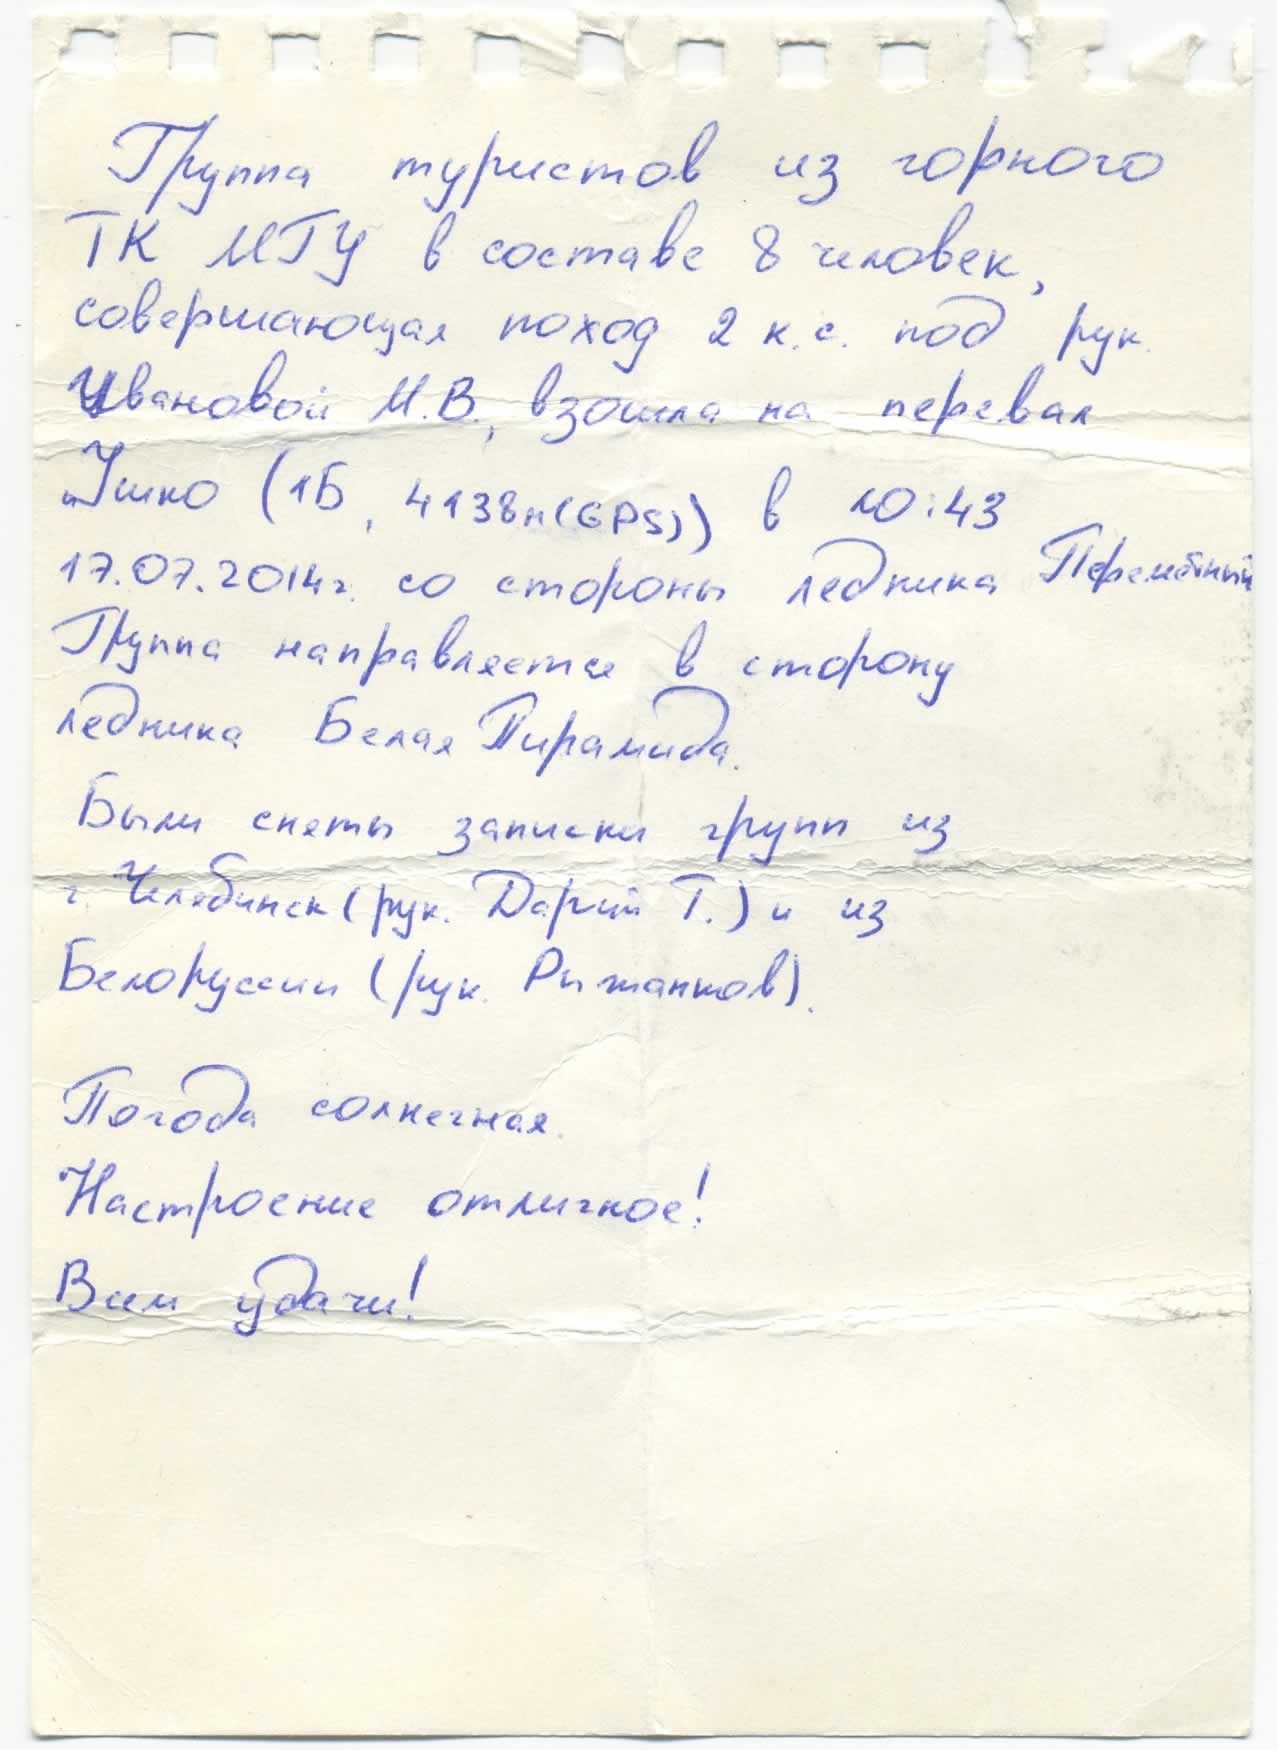 Группа туристов из горного
ТК МГУ в составе 8 человек,
совершающая поход 2 к.с. под рук.
Ивановой М.В., взошла на перевал
Ушко (1Б, 4138м(GPS)) в 10:43
17.07.2014г. со стороны ледника Перемётный
Группа направляется в сторону
ледника Белая Пирамида.
Были сняты записки групп из
г. Челябинск (рук. Т.) и из
Белоруссии (рук.).
Погода солнечная.
Настроение отличное!
Вам удачи!